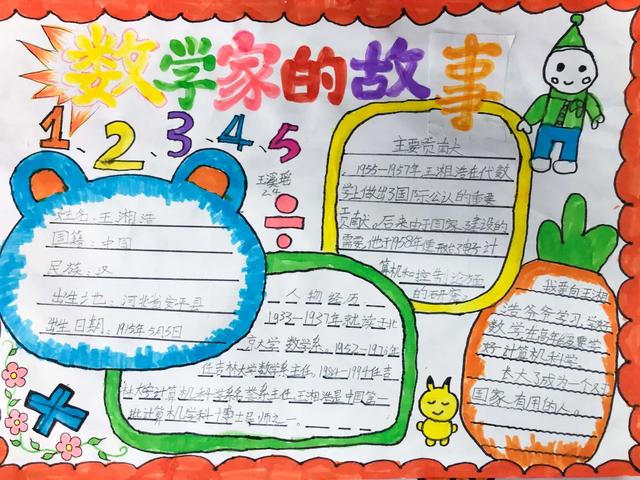 数学家的故事
1、2、3、4、5
王溪瑶
÷
姓名:王湘浩
国籍:中国
民族:汉
出生地:河北省安平县
出生日期:1915年5月5日
主要贡献
1955-1957年王湘浩在代数
学上做出了国际公认的重要
贡献。后来由于国家建设的
需要,他于1958年
算机和控制论方面
的研究。
人物经历
1933-1937年就读于北
京大学数学系、1952-1976年
任吉林大学数学系主任、1984-1994任吉
林大学计算机科学系名誉系主任、王湘浩是中国第一
批计算机学科博士导师之一。
我要向王湘
浩爷爷学习,学好
数学
好计算机科学
长大了成为一个对于
国家有用的人。
×